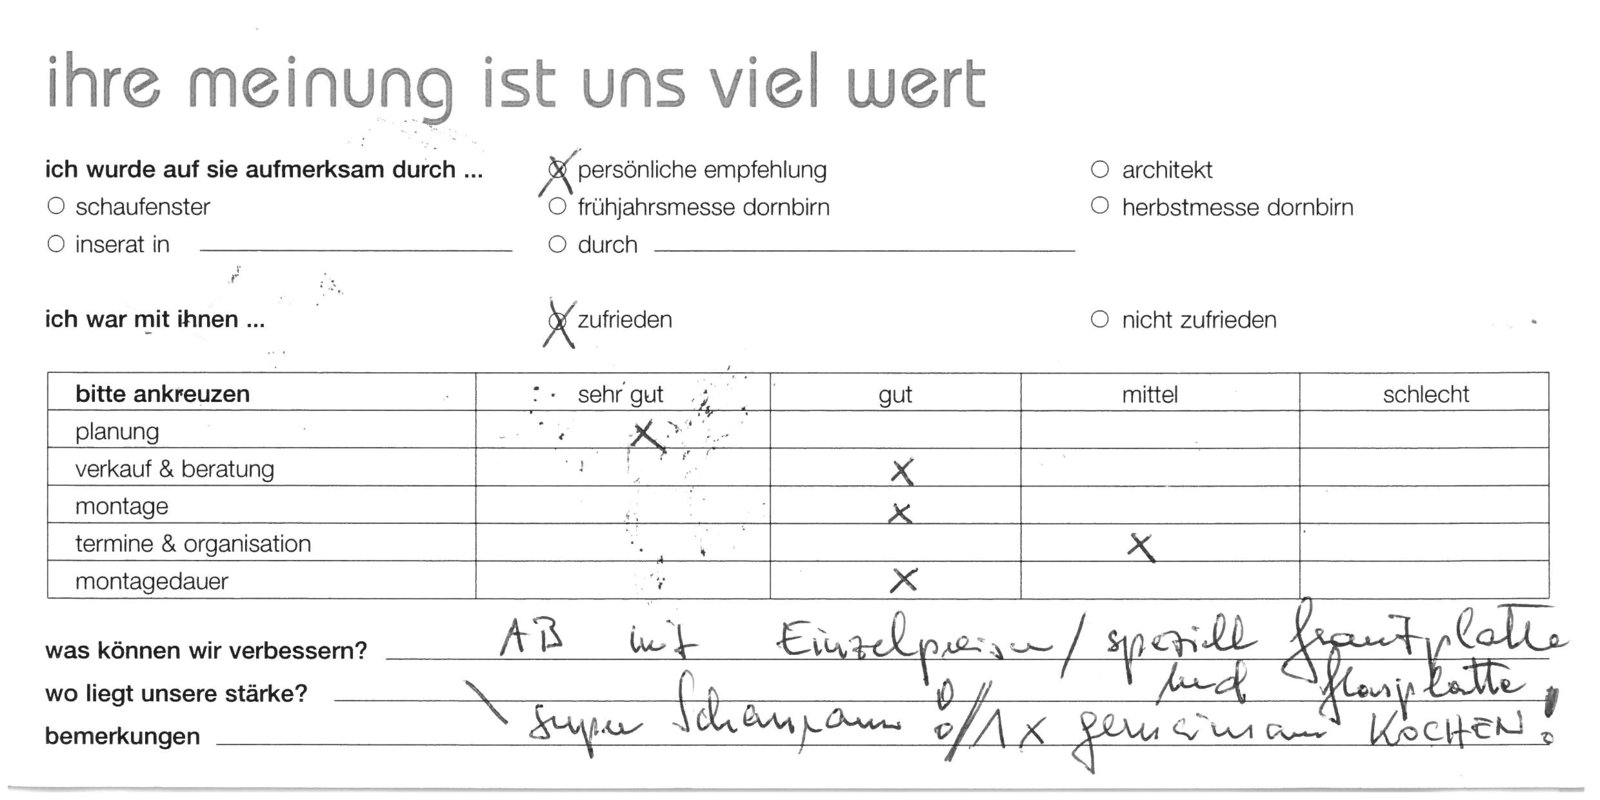 ihre meinung ist uns viel wert
ich wurde auf sie aufmerksam durch ... persönliche empfehlung architekt
schaufenster frühjahrsmesse dornbirn herbstmesse dornbirn
inserat in durch
ich war mit ihnen ... zufrieden nicht zufrieden
bitte ankreuzen sehr gut gut mittel schlecht
planung X
verkauf & beratung X
montage X
termine & organisation X
montagedauer X
was können wir verbessern? AB mit Einzelpreisen / speziell Granitplatte
wo liegt unsere stärke? und Glasplatte!
bemerkungen super Schauraum! // 1x gemeinsam KOCHEN!